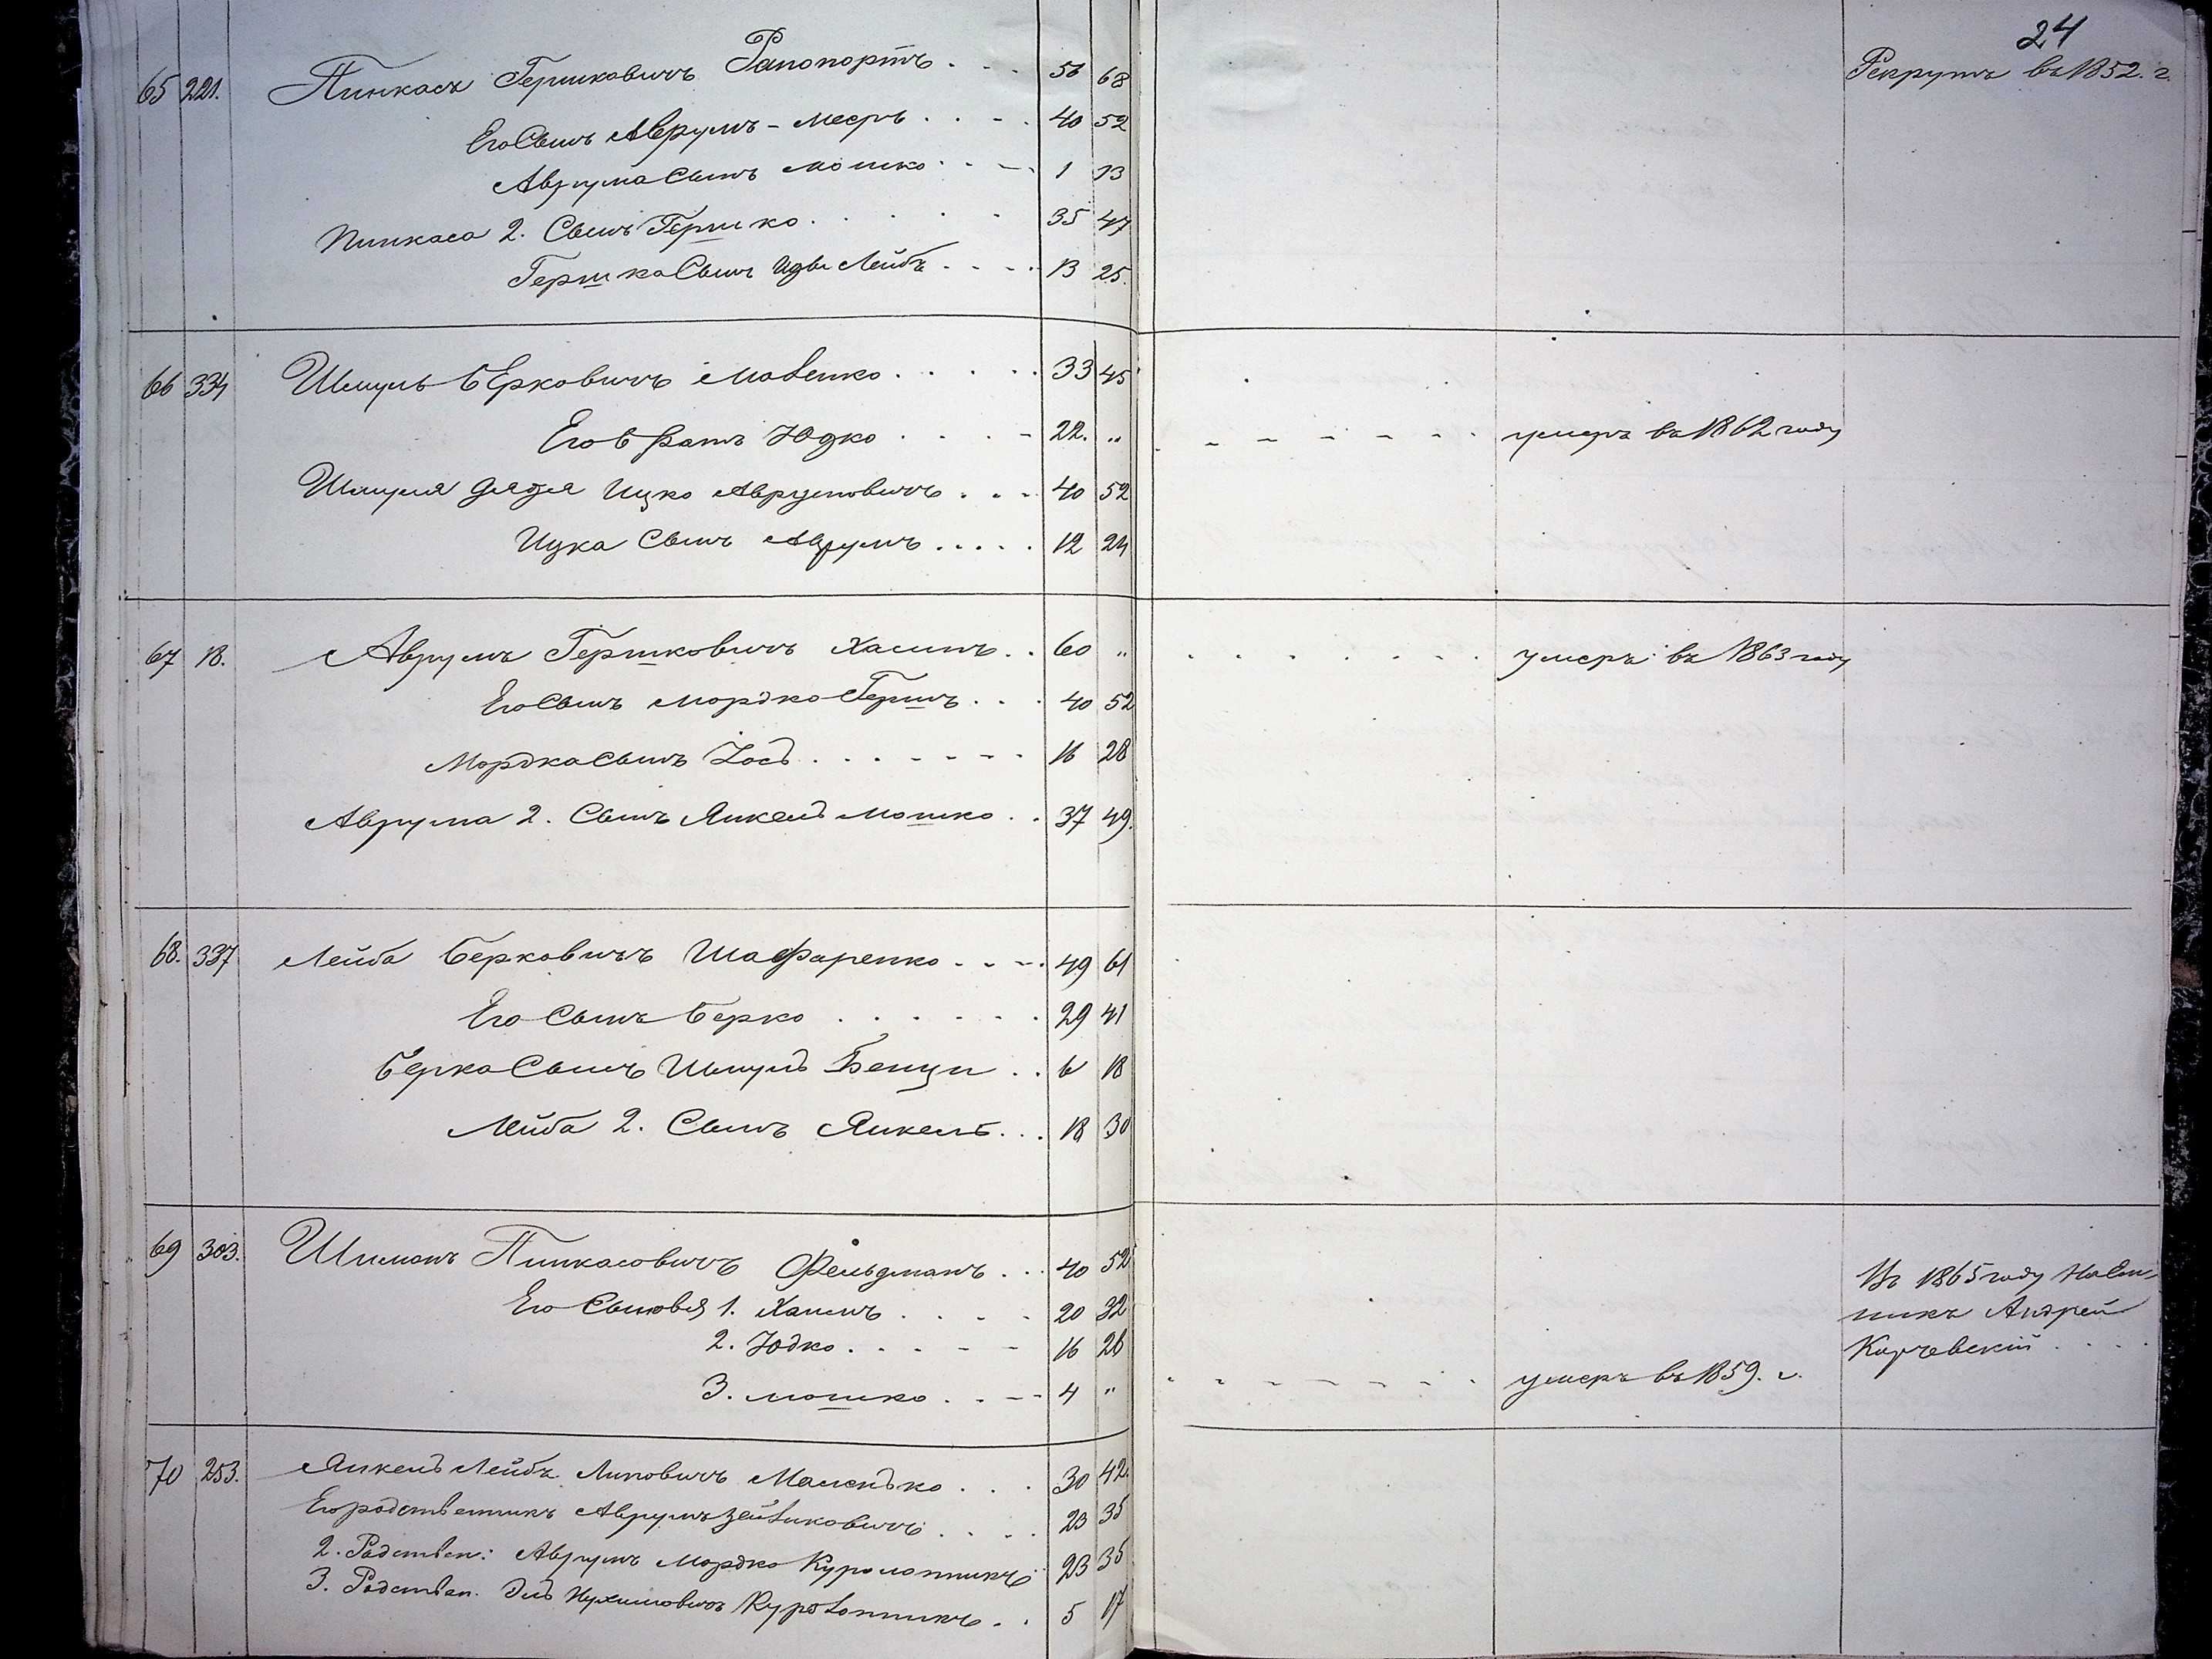 24
65 221. Пинкасъ Гершковичъ Рапопортъ . . . 56 68 Рекрутъ въ 1852. г.
Его Сынъ Аврумъ-Мееръ . . . 40 52
Аврума Сынъ Мошко . . . 1 13
Пинкаса 2. Сынъ Гершко . . . . . 35 47
Гершка Сынъ Лейбъ . . . . 13 25.
66 334 Шмуль Берковичъ . . . . . 33 45
Его братъ Юдко . . . - 22. " - - - - - - умеръ въ 1862 году
Шмуля дядя Ицко Аврумовичъ . . . 40 52
Ицка Сынъ Аврумъ . . . . . 12 24
67 18. Аврумъ Гершковичъ Хаитъ . . 60 " . . . . . . . умеръ въ 1863 году
Его Сынъ Мордко Гершъ . . . 40 52
Мордка Сынъ Іось . . . . - - - 16 28
Аврума 2. Сынъ Янкель Мошко . . 37 49.
68. 337 Лейба Берковичъ Шафаренко . . - . 49 61
Его Сынъ Берко . . . . . . . 29 41
Берка Сынъ Шмуль Бенци . . 6 18
Лейба 2. Сынъ Янкель . . . 18 30
69 303. Шиманъ Пинкасовичъ Фельдманъ . . . 40 52 Въ 1865 году Наем-
Его Сыновья 1. Хаимъ . . . . 20 32 никъ Андрей
2. Юдко . . . . - - 16 28 Корчевскій . . . .
3. Мошко . . - - 4 " - - - - - - - умеръ въ 1859. г.
70 253. Янкель Лейбъ Липовичъ . . . 30 42.
Его родственникъ Аврумъ Зейликовичъ . . . . 23 35
2. Родствен: Аврумъ Мордко 23 35
3. Родствен. Эль . . 5 17